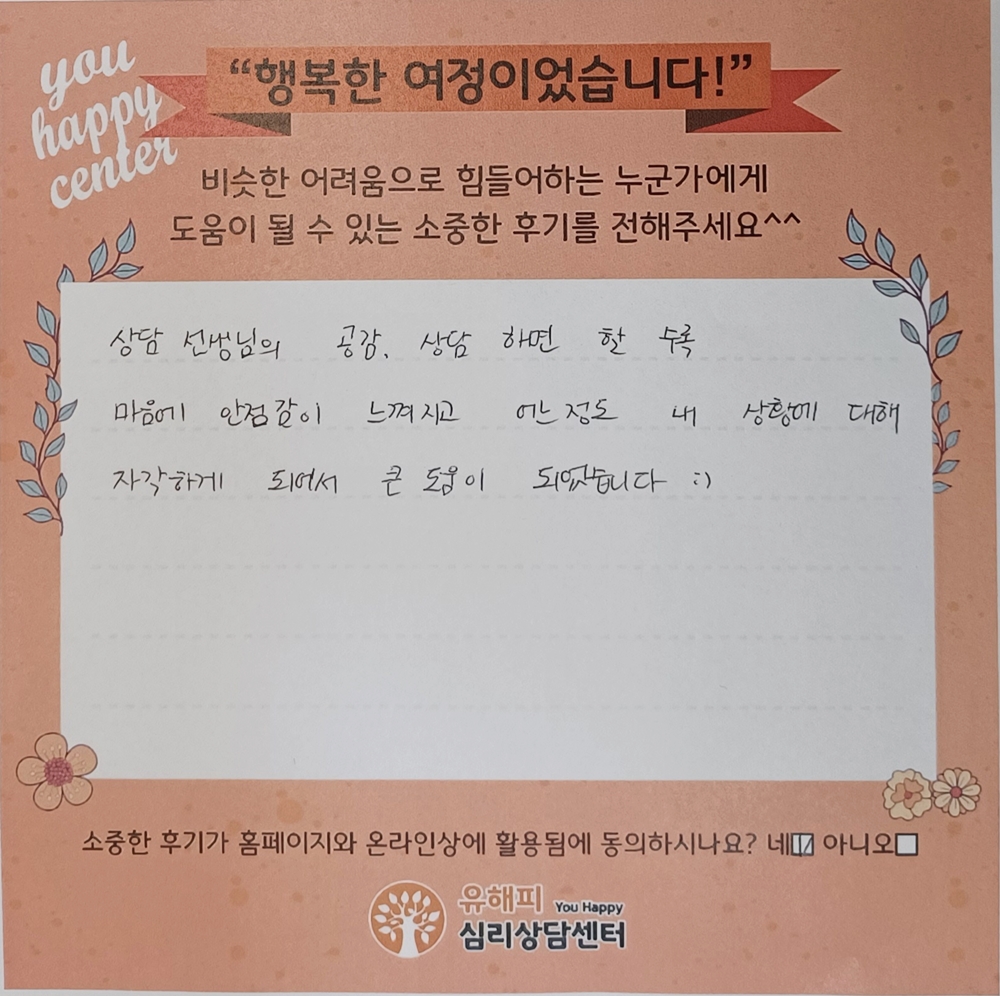 you
happy
center
“행복한 여정이었습니다!”
비슷한 어려움으로 힘들어하는 누군가에게
도움이 될 수 있는 소중한 후기를 전해주세요^^
상담 선생님의 공감, 상담 하면 할 수록
마음에 안점감이 느껴지고 어느정도 내 상황에 대해
자각하게 되어서 큰 도움이 되었습니다 :)
소중한 후기가 홈페이지와 온라인상에 활용됨에 동의하시나요? 네☑ 아니오□
유해피 You Happy
심리상담센터